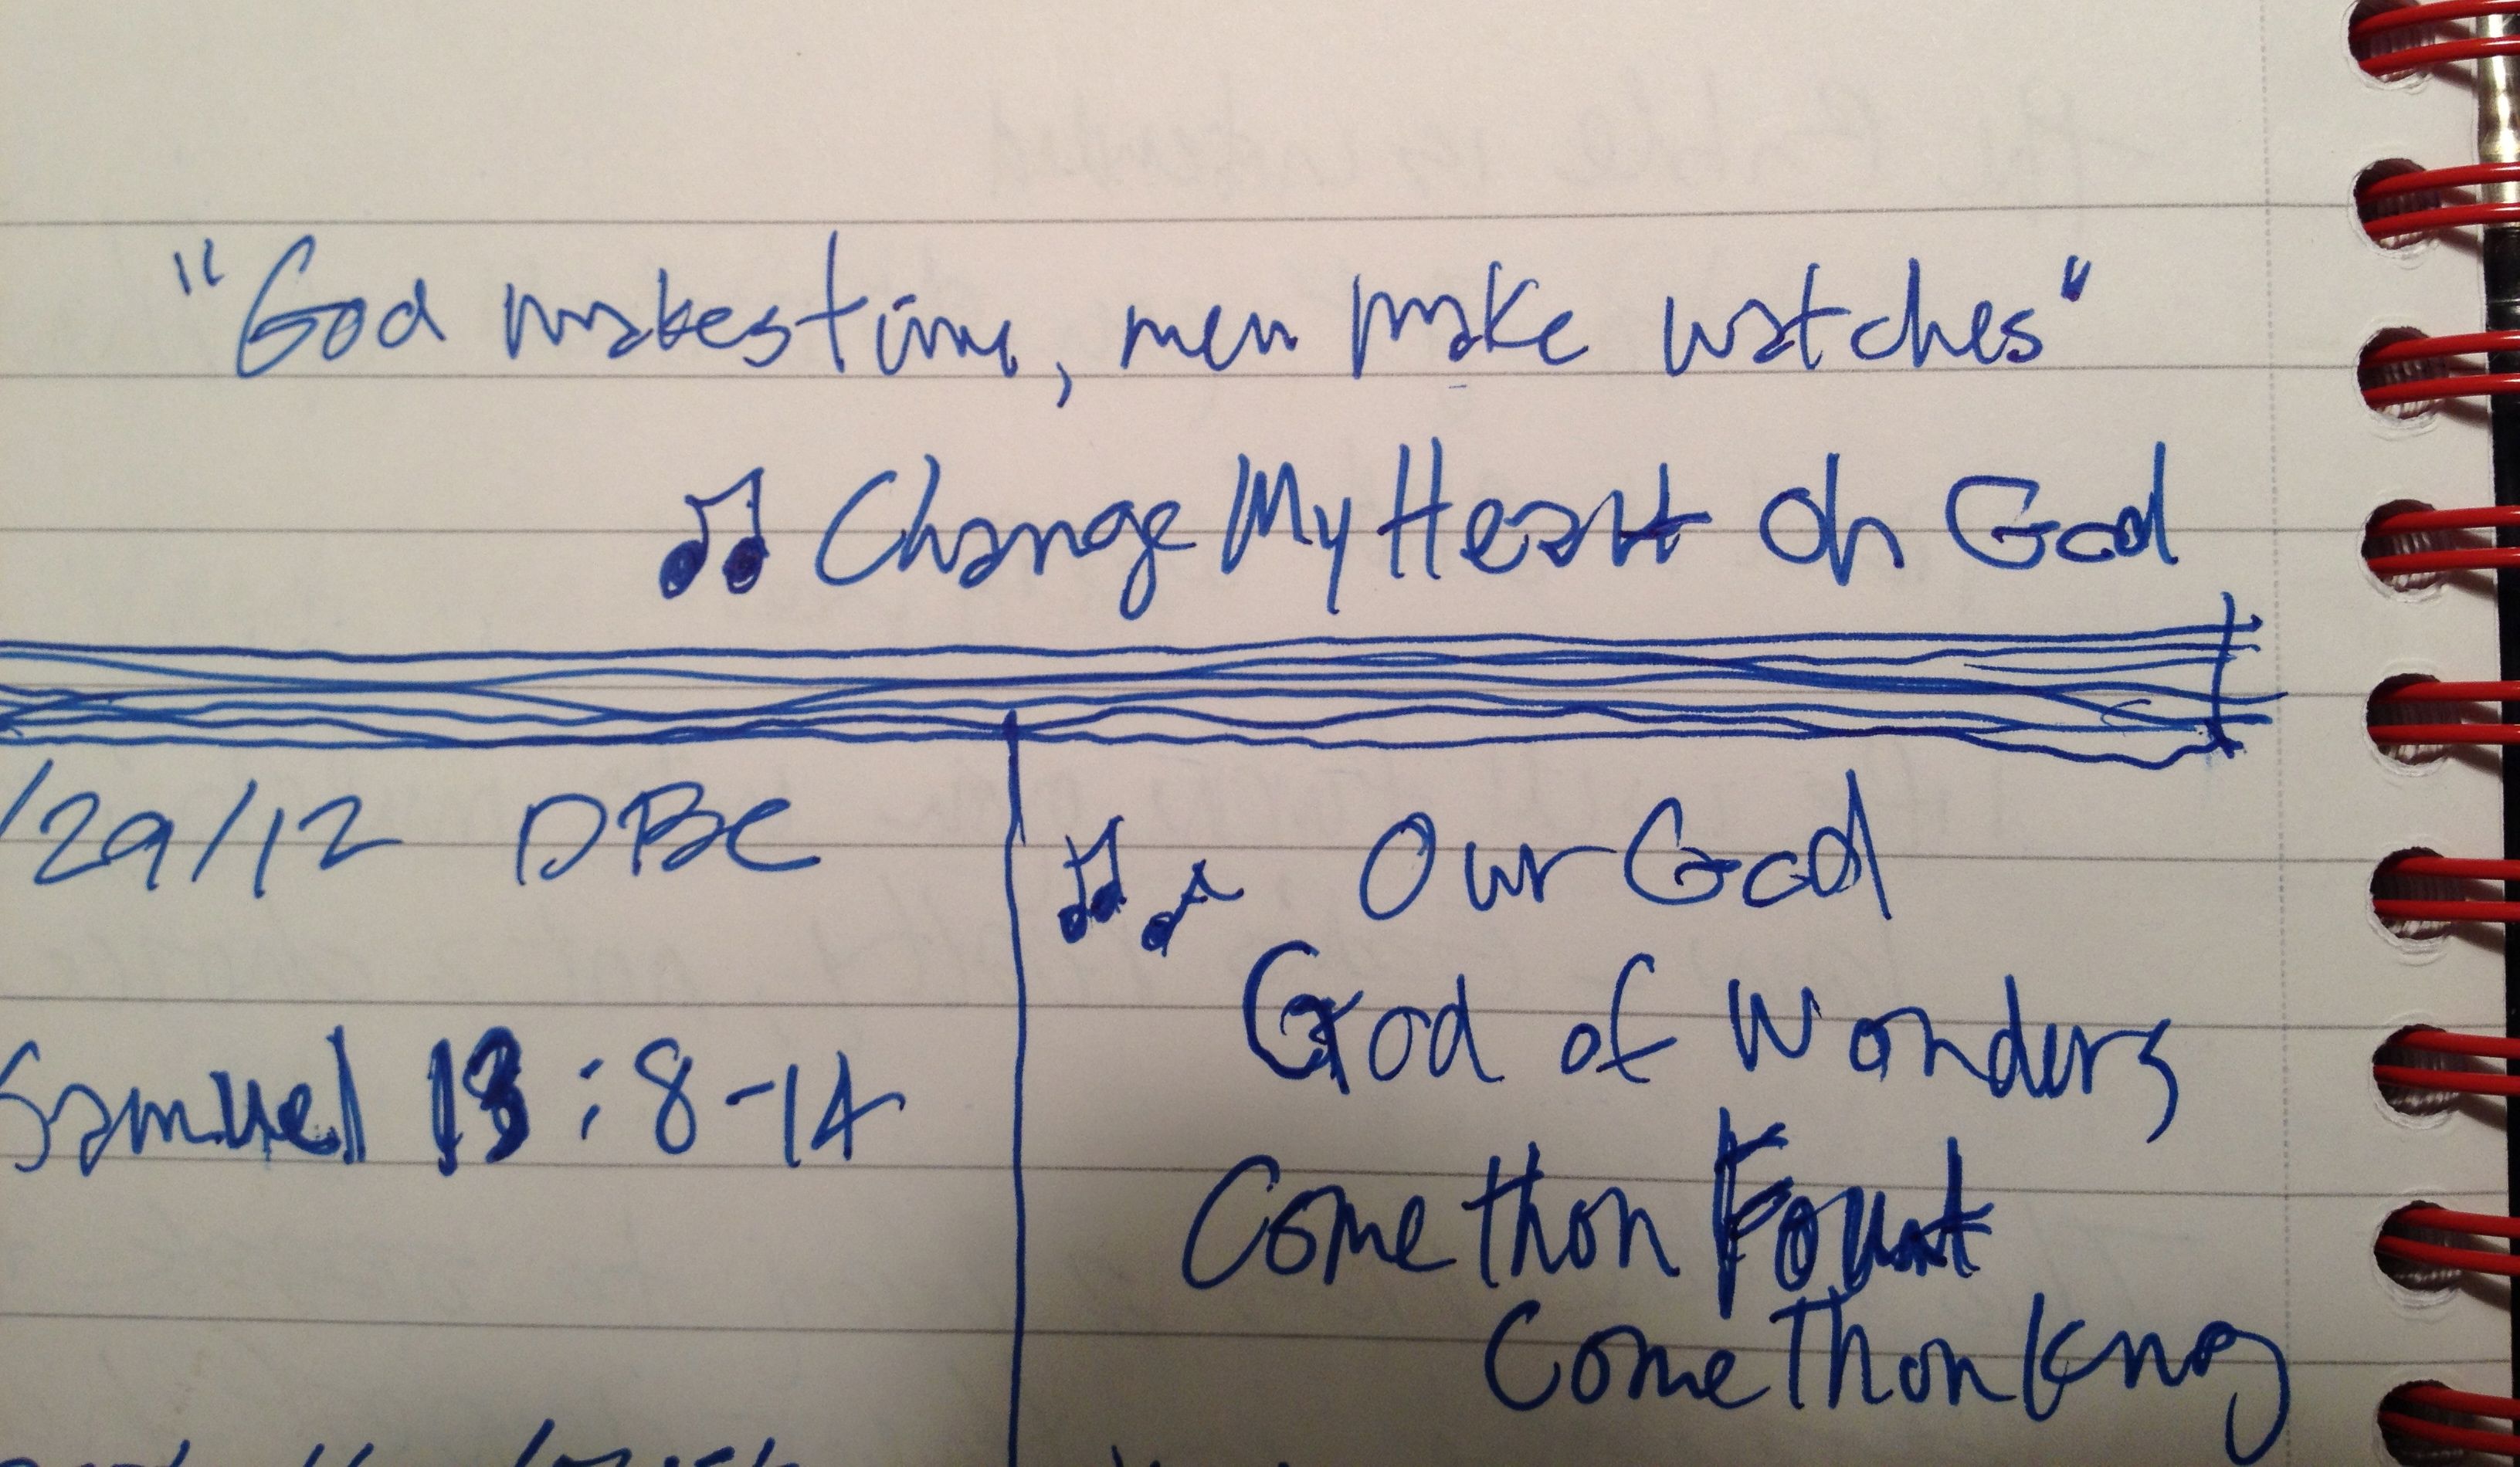 "God makes time, men make watches"
♫ Change My Heart Oh God
/29/12 DBC
♫♪ Our God
God of Wonders
Samuel 13:8-14
Come thou Fount
Come Thou King